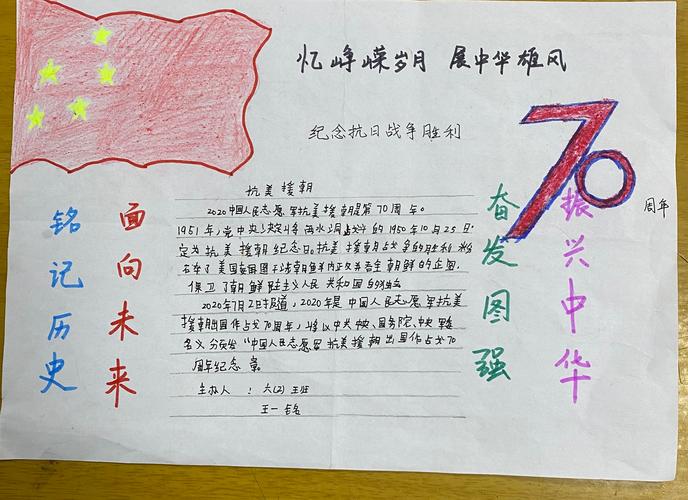 忆峥嵘岁月 展中华雄风
纪念抗日战争胜利
70周年
铭记历史
面向未来
抗美援朝
2020中国人民志愿军抗美援朝是第70周年。
1951年,党中央决定将 的1950年10月25日
定为抗美援朝纪念日。抗美援朝战争的胜利粉
了美国 干涉朝鲜内 朝鲜的企图,
保卫了朝鲜 主义人民共和国的
2020年7月2日报道,2020年是中国人民志愿军抗美
援朝出国作战70周年,将以中共中央、国务院、中央军委
名义 "中国人民志愿军抗美援朝出国作战70
周年纪念章。
主办人:六(2)班
王一
奋发图强
振兴中华